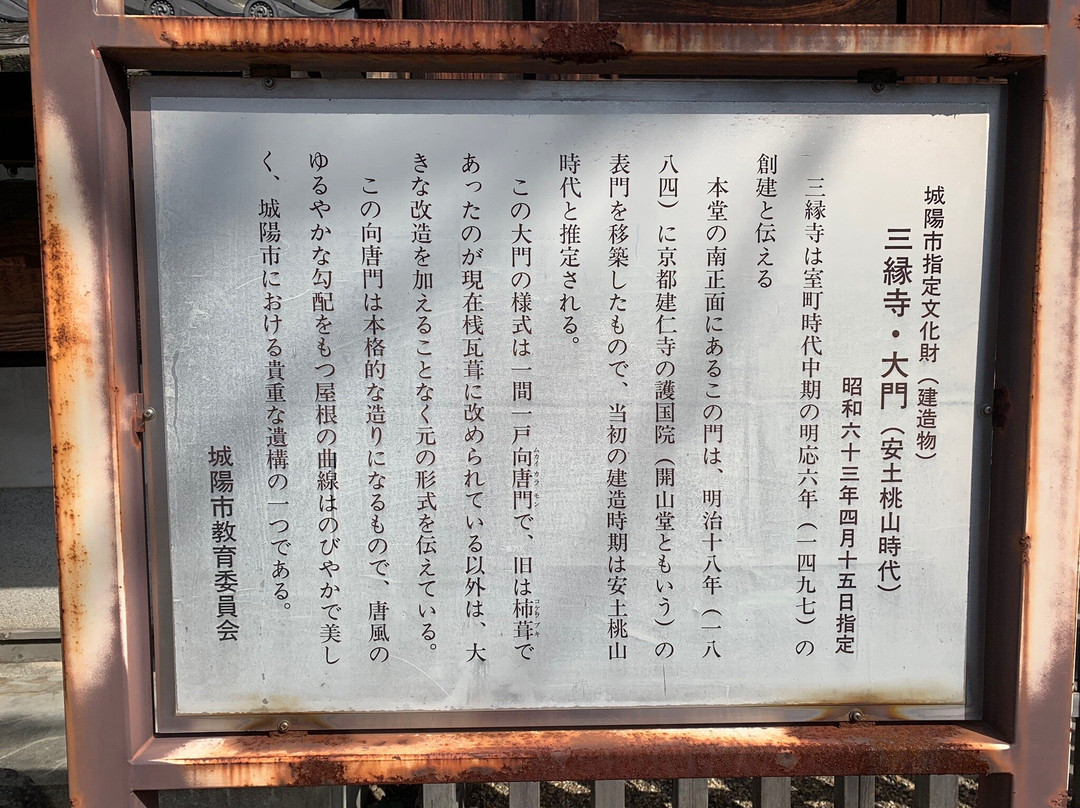 城陽市指定文化財（建造物）
三縁寺・大門（安土桃山時代）
昭和六十三年四月十五日指定
三縁寺は室町時代中期の明応六年（一四九七）の
創建と伝える
本堂の南正面にあるこの門は、明治十八年（一八
八四）に京都建仁寺の護国院（開山堂ともいう）の
表門を移築したもので、当初の建造時期は安土桃山
時代と推定される。
この大門の様式は一間一戸向唐門で、旧は柿葺で
ムカイカラモン
コケラブキ
あったのが現在桟瓦葺に改められている以外は、大
きな改造を加えることなく元の形式を伝えている。
この向唐門は本格的な造りになるもので、唐風の
ゆるやかな勾配をもつ屋根の曲線はのびやかで美し
く、城陽市における貴重な遺構の一つである。
城陽市教育委員会